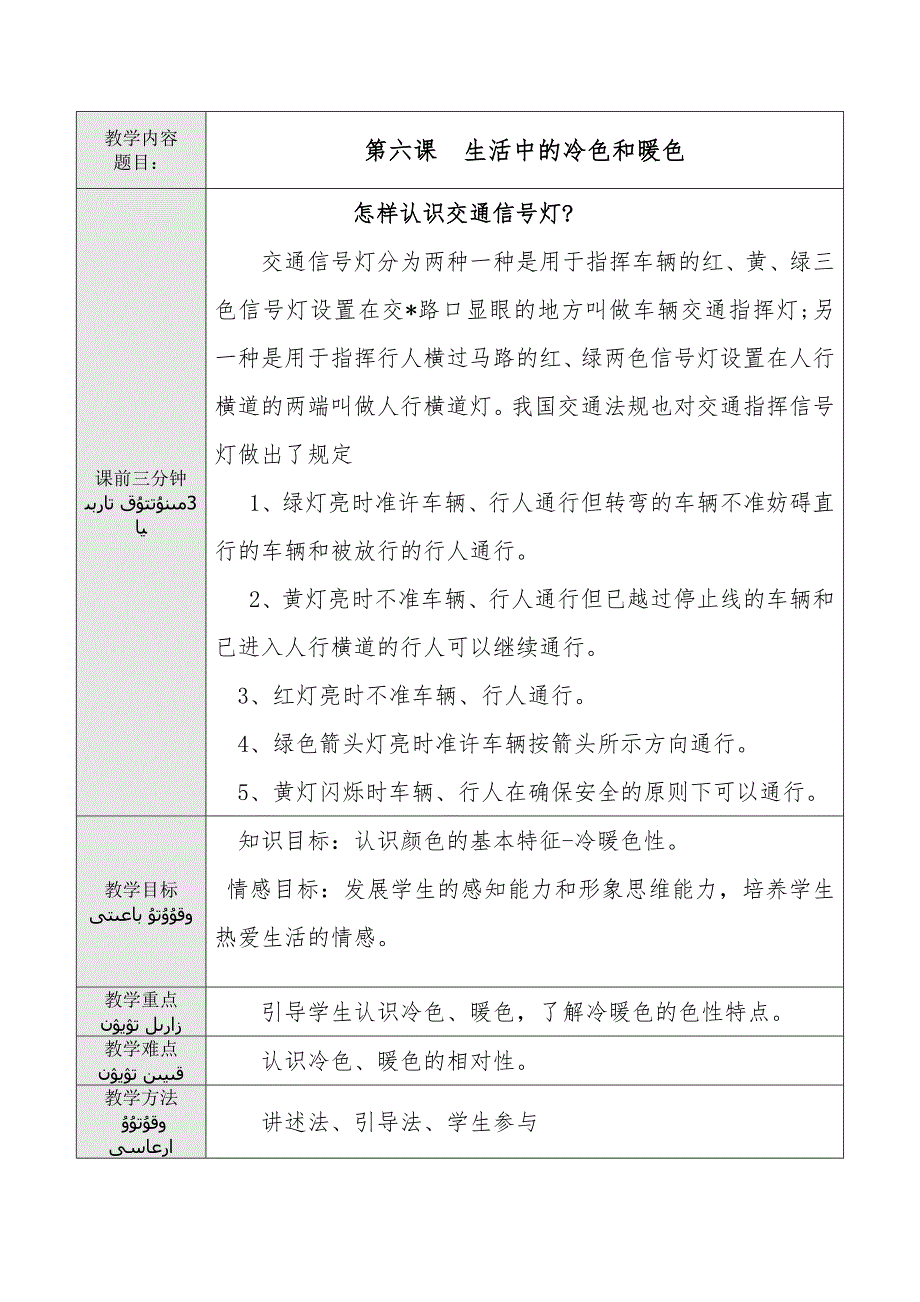 教学内容
题目：
第六课　生活中的冷色和暖色
怎样认识交通信号灯?
交通信号灯分为两种一种是用于指挥车辆的红、黄、绿三
色信号灯设置在交*路口显眼的地方叫做车辆交通指挥灯;另
一种是用于指挥行人横过马路的红、绿两色信号灯设置在人行
横道的两端叫做人行横道灯。我国交通法规也对交通指挥信号
灯做出了规定
1、绿灯亮时准许车辆、行人通行但转弯的车辆不准妨碍直
行的车辆和被放行的行人通行。
2、黄灯亮时不准车辆、行人通行但已越过停止线的车辆和
已进入人行横道的行人可以继续通行。
3、红灯亮时不准车辆、行人通行。
4、绿色箭头灯亮时准许车辆按箭头所示方向通行。
5、黄灯闪烁时车辆、行人在确保安全的原则下可以通行。
课前三分钟
3مىنۇتتۇق تاربى
يا
知识目标：认识颜色的基本特征-冷暖色性。
情感目标：发展学生的感知能力和形象思维能力，培养学生
热爱生活的情感。
教学目标
وقۇۇتۇ باعىتى
教学重点
زارىل تۇيۇن
引导学生认识冷色、暖色，了解冷暖色的色性特点。
教学难点
قىيىن تۇيۇن
认识冷色、暖色的相对性。
教学方法
وقۇتۇۇ
ارعاسى
讲述法、引导法、学生参与